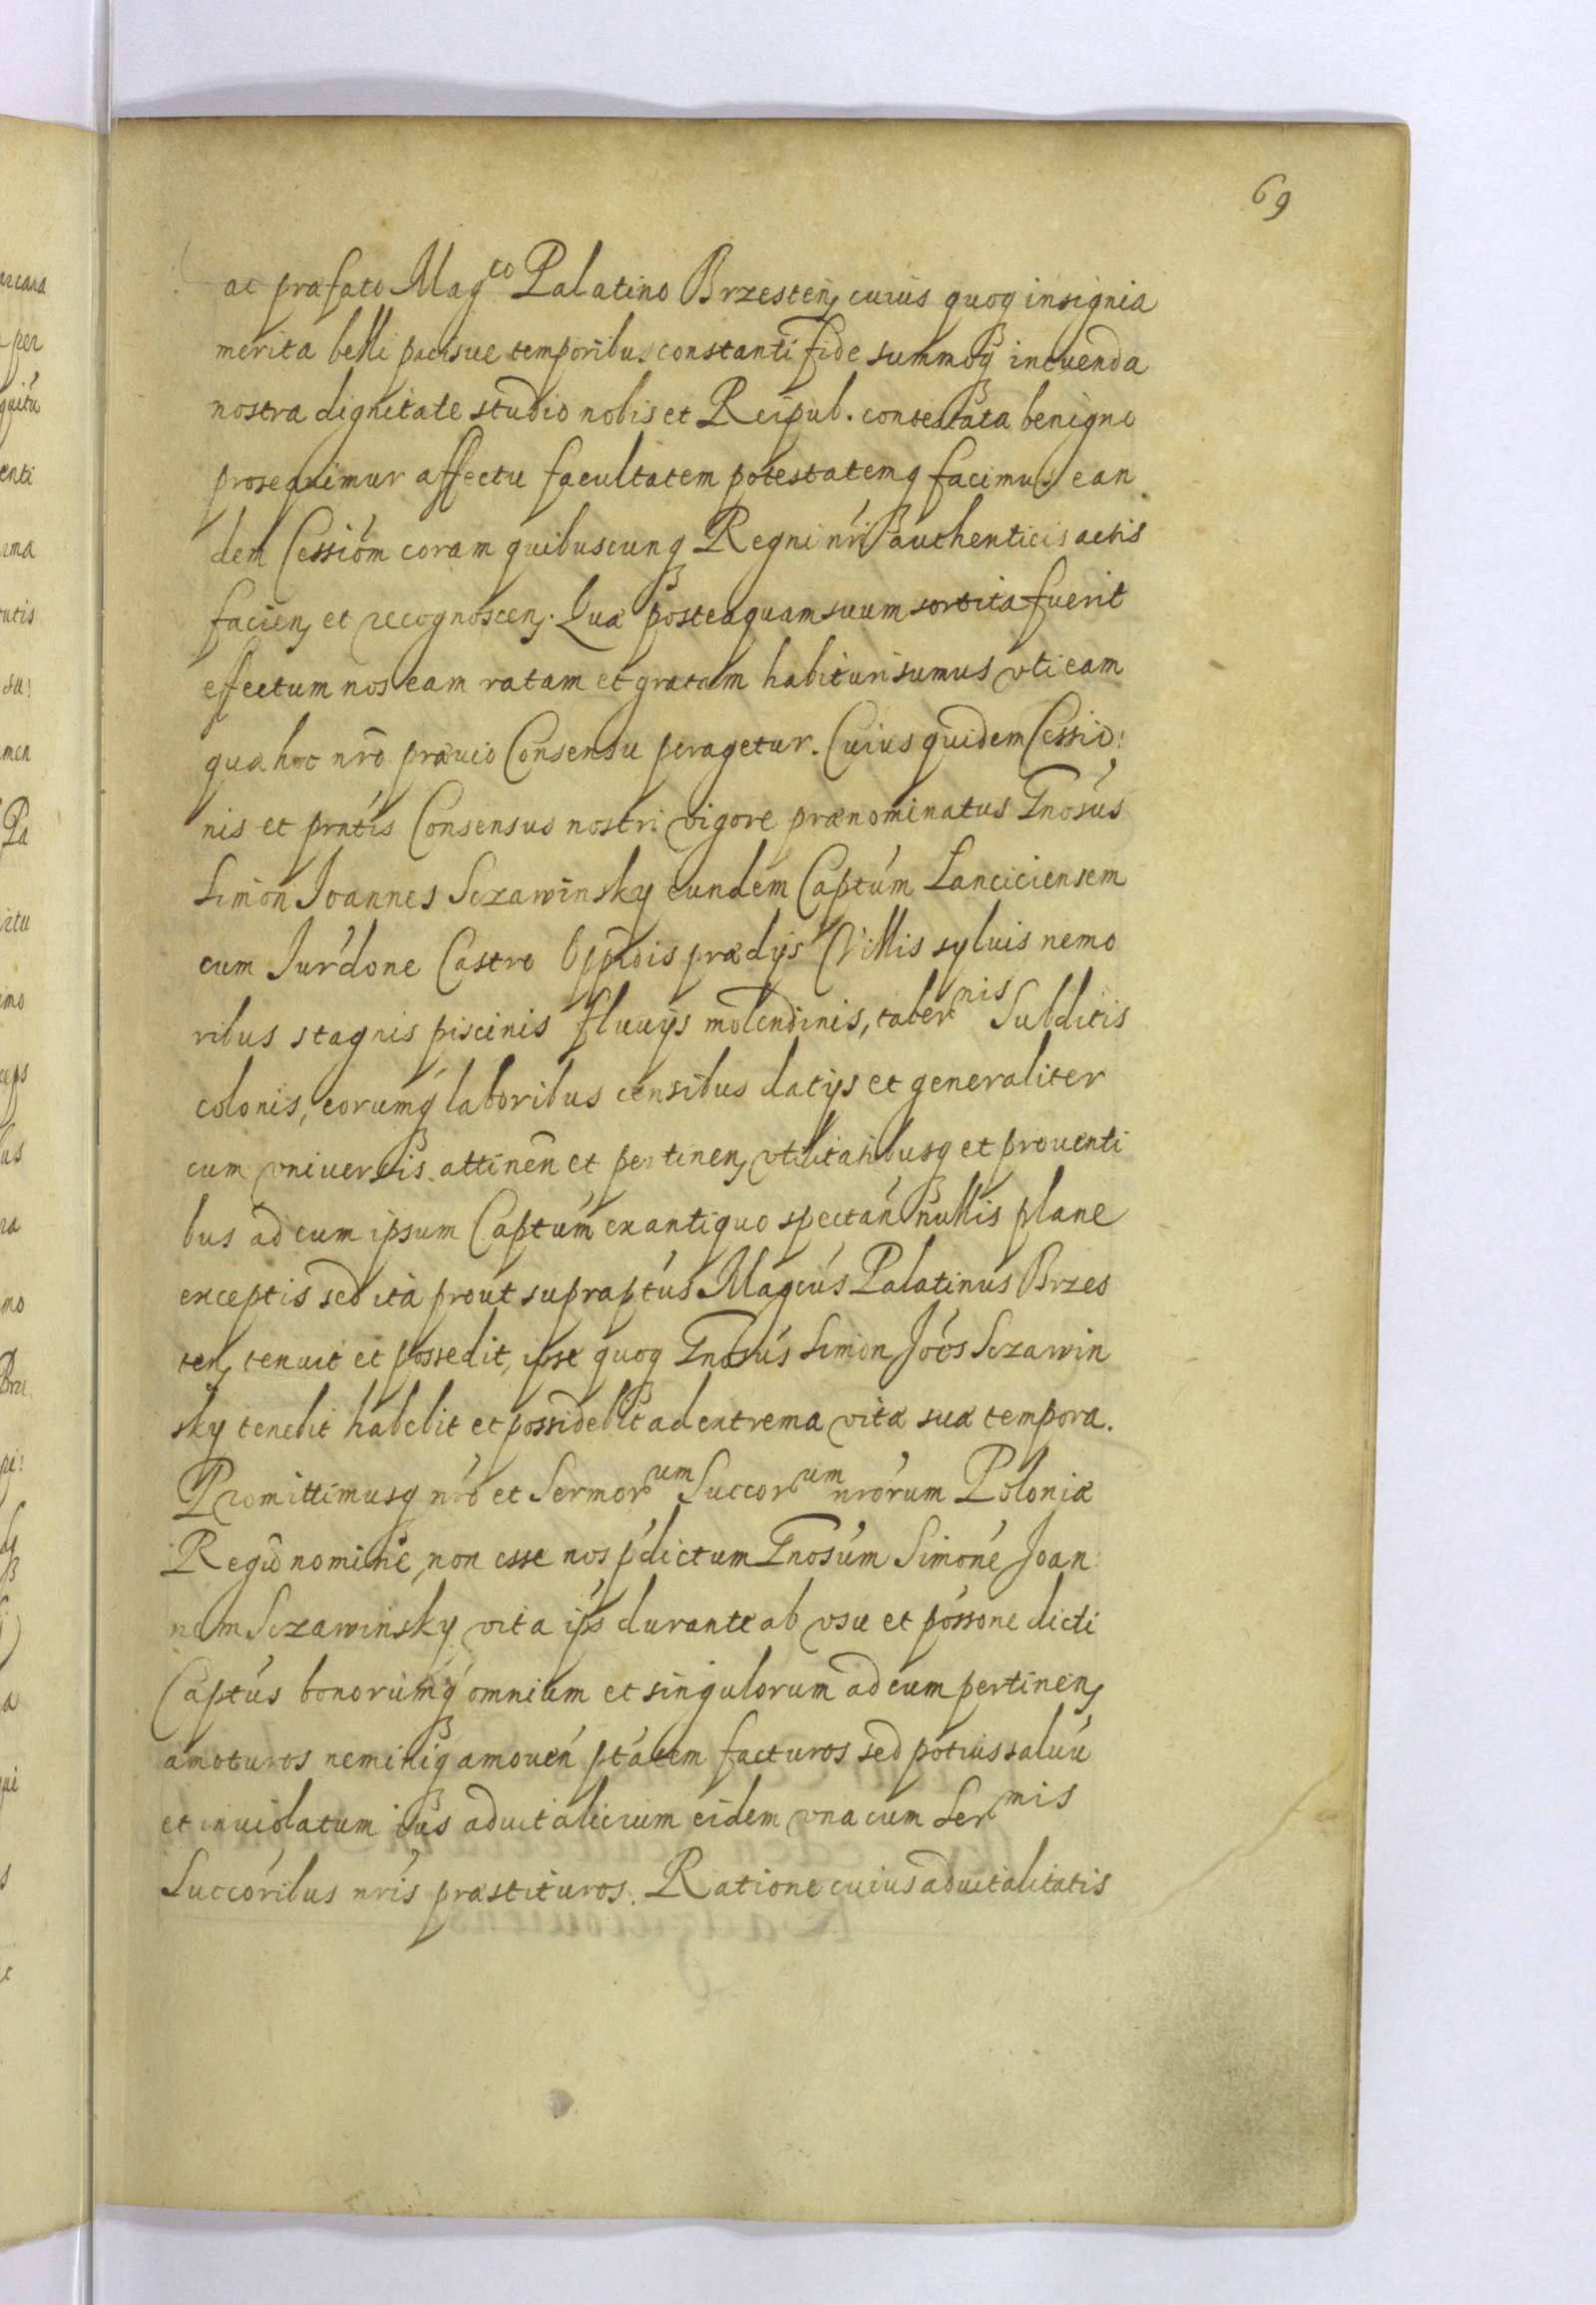 69
ac præfato Mag^co Palatino Brzesten, cuius quoq insignia
merita belli pacisue temporibus constanti fide summoq in tuenda
nostra dignitate studio nobis et Reipub. contestata benigno
prosequimur affectu facultatem potestatemq facimus ean
dem Cessióm coram quibuscunq Regni nri authenticis actis
facien, et recognoscen, Quæ posteaquam suum sortita fuerit
effectum nos eam ratam et gratam habituri sumus vti eam
quæ hoc nro præuio Consensu peragetur. Cuius quidem Cessio:
nis et prntis Consensus nostri vigore prænominatus Gnosus
Simon Joannes Sczawinsky eundem Captúm Lanciciensem
cum Jurdone Castro Oppidis prædijs Villis syluis nemo
ribus stagnis piscinis fluuijs molendinis, tabernis Subditis
colonis, eorumq laboribus censibus datijs et generaliter
cum vniuersis attinen et pertinen, vtilitatibusq et prouenti
bus ad eum ipsum Captúm ex antiquo spectán nullis plane
exceptis sed ita prout supraptus Magcús Palatinus Brzes
ten, tenuit et possedit, ipse quoq Gnosus Simon Joós Sczawin
sky tenebit habebit et possidebit ad extrema vitæ suæ tempora.
Promittimusq nro et Sermor^um Succor^um nrórum Poloniæ
Regū nomine, non esse nos pdictum Gnosúm Simoné Joan
nem Sczawinsky vita ips durante ab vsu et possone dicti
Captús bonorúmq omnium et singulorum ad eum pertinen,
amoturos neminiq amouén ptátem facturos sed potius saluú
et inuiolatum ius aduitalicium eidem vna cum Ser^mis
Succóribus nris præstituros. Ratione cuius aduitalitatis